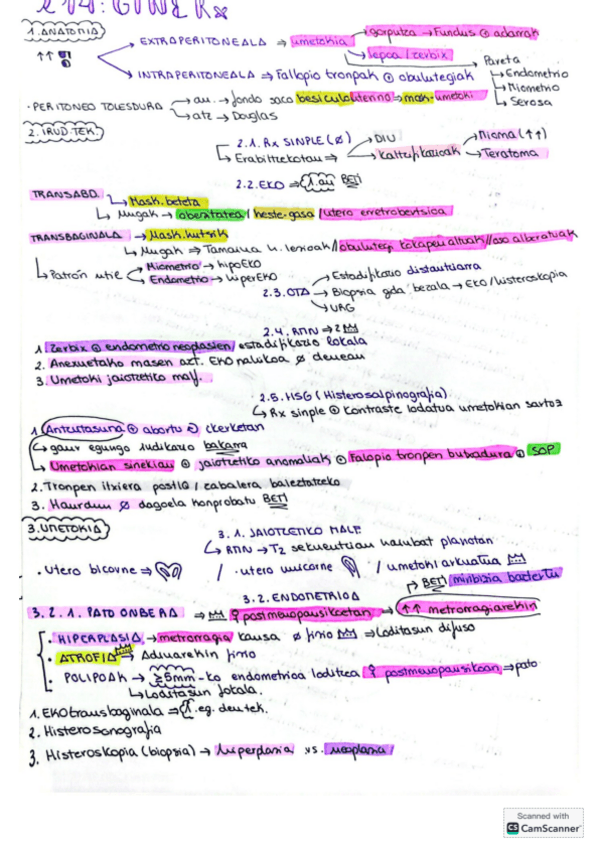 214: GINE Rx
1. ANATOMIA
EXTRAPERITONEALA ⇒ umetokia → gorputza → Fundus ⊕ adarrak
↑↑ ♀
lepoa / zerbix
Pareta
INTRAPERITONEALA ⇒ Fallopio tronpak ⊕ obulutegiak
Endometrio
Miometrio
Serosa
· PERITONEO TOLESDURA → au. → fondo saco besikulouterino ⇒ mask-umetoki
atz → Douglas
2. IRUD. TEK.
2.1. Rx SINPLE (∅) → DIU
Erabiltzekotan ⇒ → kaltzifikazioak → Mioma (↑↑)
Teratoma
2.2. EKO ⇒ 1. au BETI
TRANSABD. → Mask. beteta
Mugak → obesitatea / heste-gasa / utero erretrobertsioa
TRANSBAGINALA → Mask. hutsik
Mugak ⇒ Tamaina h. lesioak / obulutegi kokapen altuak / oso alberatuak
Patroi utie → Miometrio → hipoEKO
Endometrio → hiperEKO
2.3. OTA → Estadifikazio distantziarra
Biopsia gida bezala → EKO / histeroskopia
URG
2.4. RMN ⇒ 2
1 Zerbix ⊕ endometrio neoplasien estadifikazio lokala
2. Anexuetako masen azt. EKO nahikoa ∅ denean
3. Umetoki jaiotzetiko malf.
2.5. HSG (Histerosalpinografia)
Rx sinple ⊕ kontraste iodatua umetokian sartoz
1 Antzutasuna ⊕ abortu ⊕ ikerketan
gaur egungo indikazio bakarra
Umetokian sinekiak ⊕ jaiotzetiko anomaliak ⊕ Falopio tronpen butxadura ⊕ SOP
2. Tronpen itxiera postIQ / zabalera baieztatzeko
3. Haurdun ∅ dagoela konprobatu BETI
3. UMETOKIA
3.1. JAIOTZENKO MALF.
RMN → T2 sekuentzian hainbat planotan
· Utero bicorne ⇒ / · utero unicorne / umetoki arkuatua
3.2. ENDOMETRIOA
BETI
3.2.1. PATO ONBERA ⇒ ♀ postmenopausikoetan → ↑↑ metrorragiarekin
· HIPERPLASIA → metrorragia kausa ∅ finio ⇒ Loditasun difuso
· ATROFIA → Adinarekin finio
· POLIPOAK → ≥5mm-ko endometrioa loditzea ♀ postmenopausikoan ⇒ pato
Loditasun fokala.
1. EKO transbaginala ⇒ 1. eg. den tek.
2. Histerosonografia
3. Histeroskopia (biopsia) → hiperplasia vs. neoplasia
Scanned with
CS CamScanner